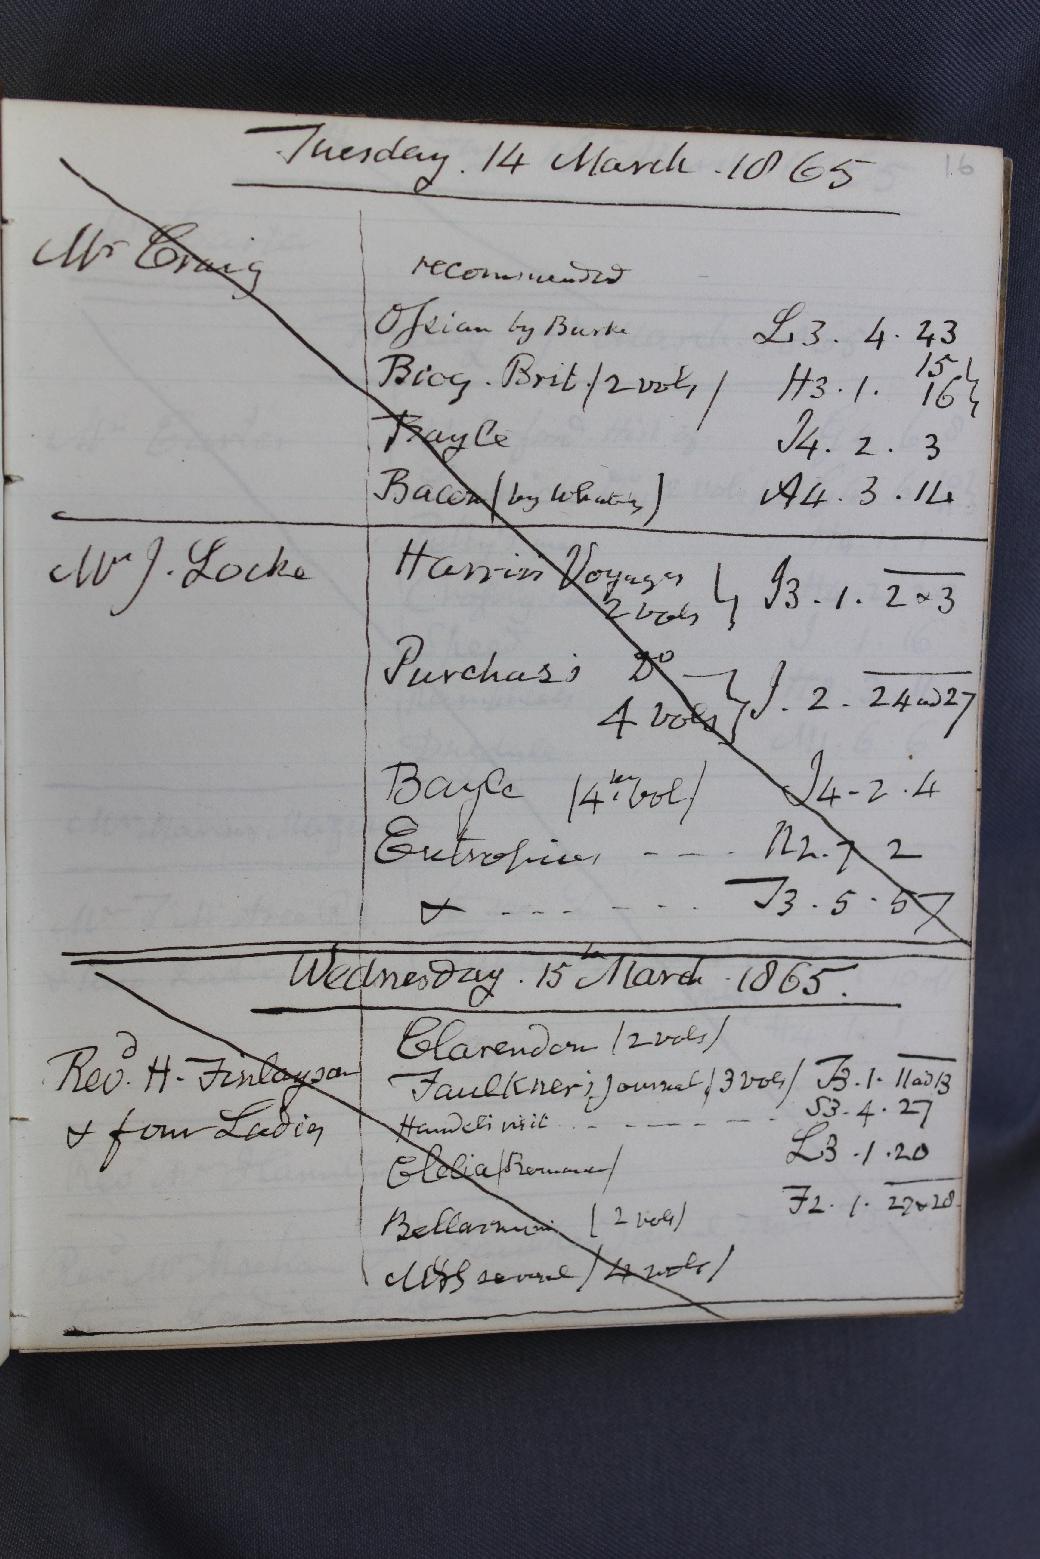 16
Tuesday. 14 March. 1865
Mr Craig
recommended
Ossian by Burke L3. 4. 23
Biog. Brit. (2 vols) H3. 1. 15 } 16 }
Bayle J4. 2. 3
Bacon (by Whately) A4. 3. 14
Mr J. Locke Harris's Voyages 2 vols } J3. 1. 2 & 3
Purchas's Do 4 vols } J. 2. 24 and 27
Bayle (4th vol) J4-2.4
Eutropius --- N2. 7 2
& ------ J3. 5. 57
Wednesday. 15th March. 1865.
Revd. H. Finlayson
& four Ladies
Clarendon (2 vols)
Faulkner's Journal (3 vols) J3. 1. 11 and 13
visit ------ S3. 4. 27
Clelia (Romance) L3. 1. 20
Bellarmini (2 vols) F2. 1. 27 & 28
MSS several (4 vols)